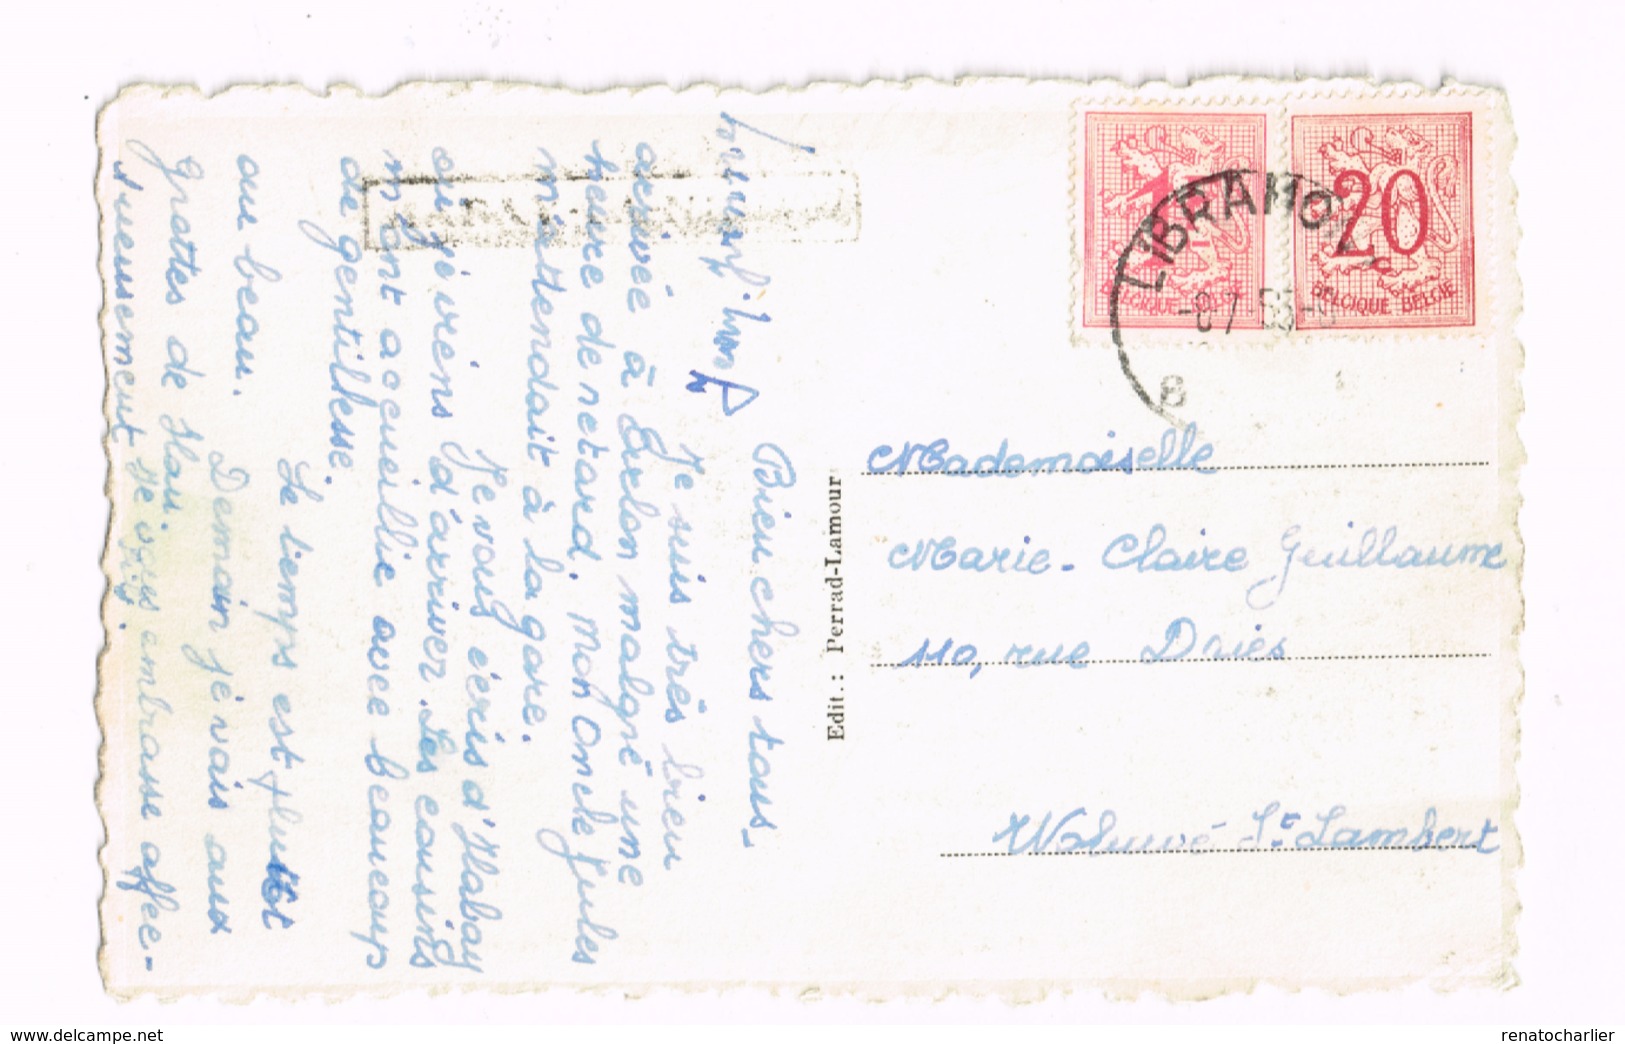 Bien chers tous.
Je suis très bien
arrivée à Arlon malgré une
heure de retard. Mon oncle Jules
m'attendait à la gare.
Je vous écris d'Habay
où je viens d'arriver. Les cousins
m'ont accueillie avec beaucoup
de gentillesse.
Le temps est plutot
au beau.
Demain je vais aux
grottes de Han.
Je vous embrasse affec-
tueusement
Edit.: Perrad-Lamour
1F
BELGIQUE BELGIË
20
BELGIQUE BELGIË
LIBRAMON
Mademoiselle
Marie-Claire Guillaume
110, rue Dries
Woluwé-St-Lambert
www.delcampe.net
renatocharlier